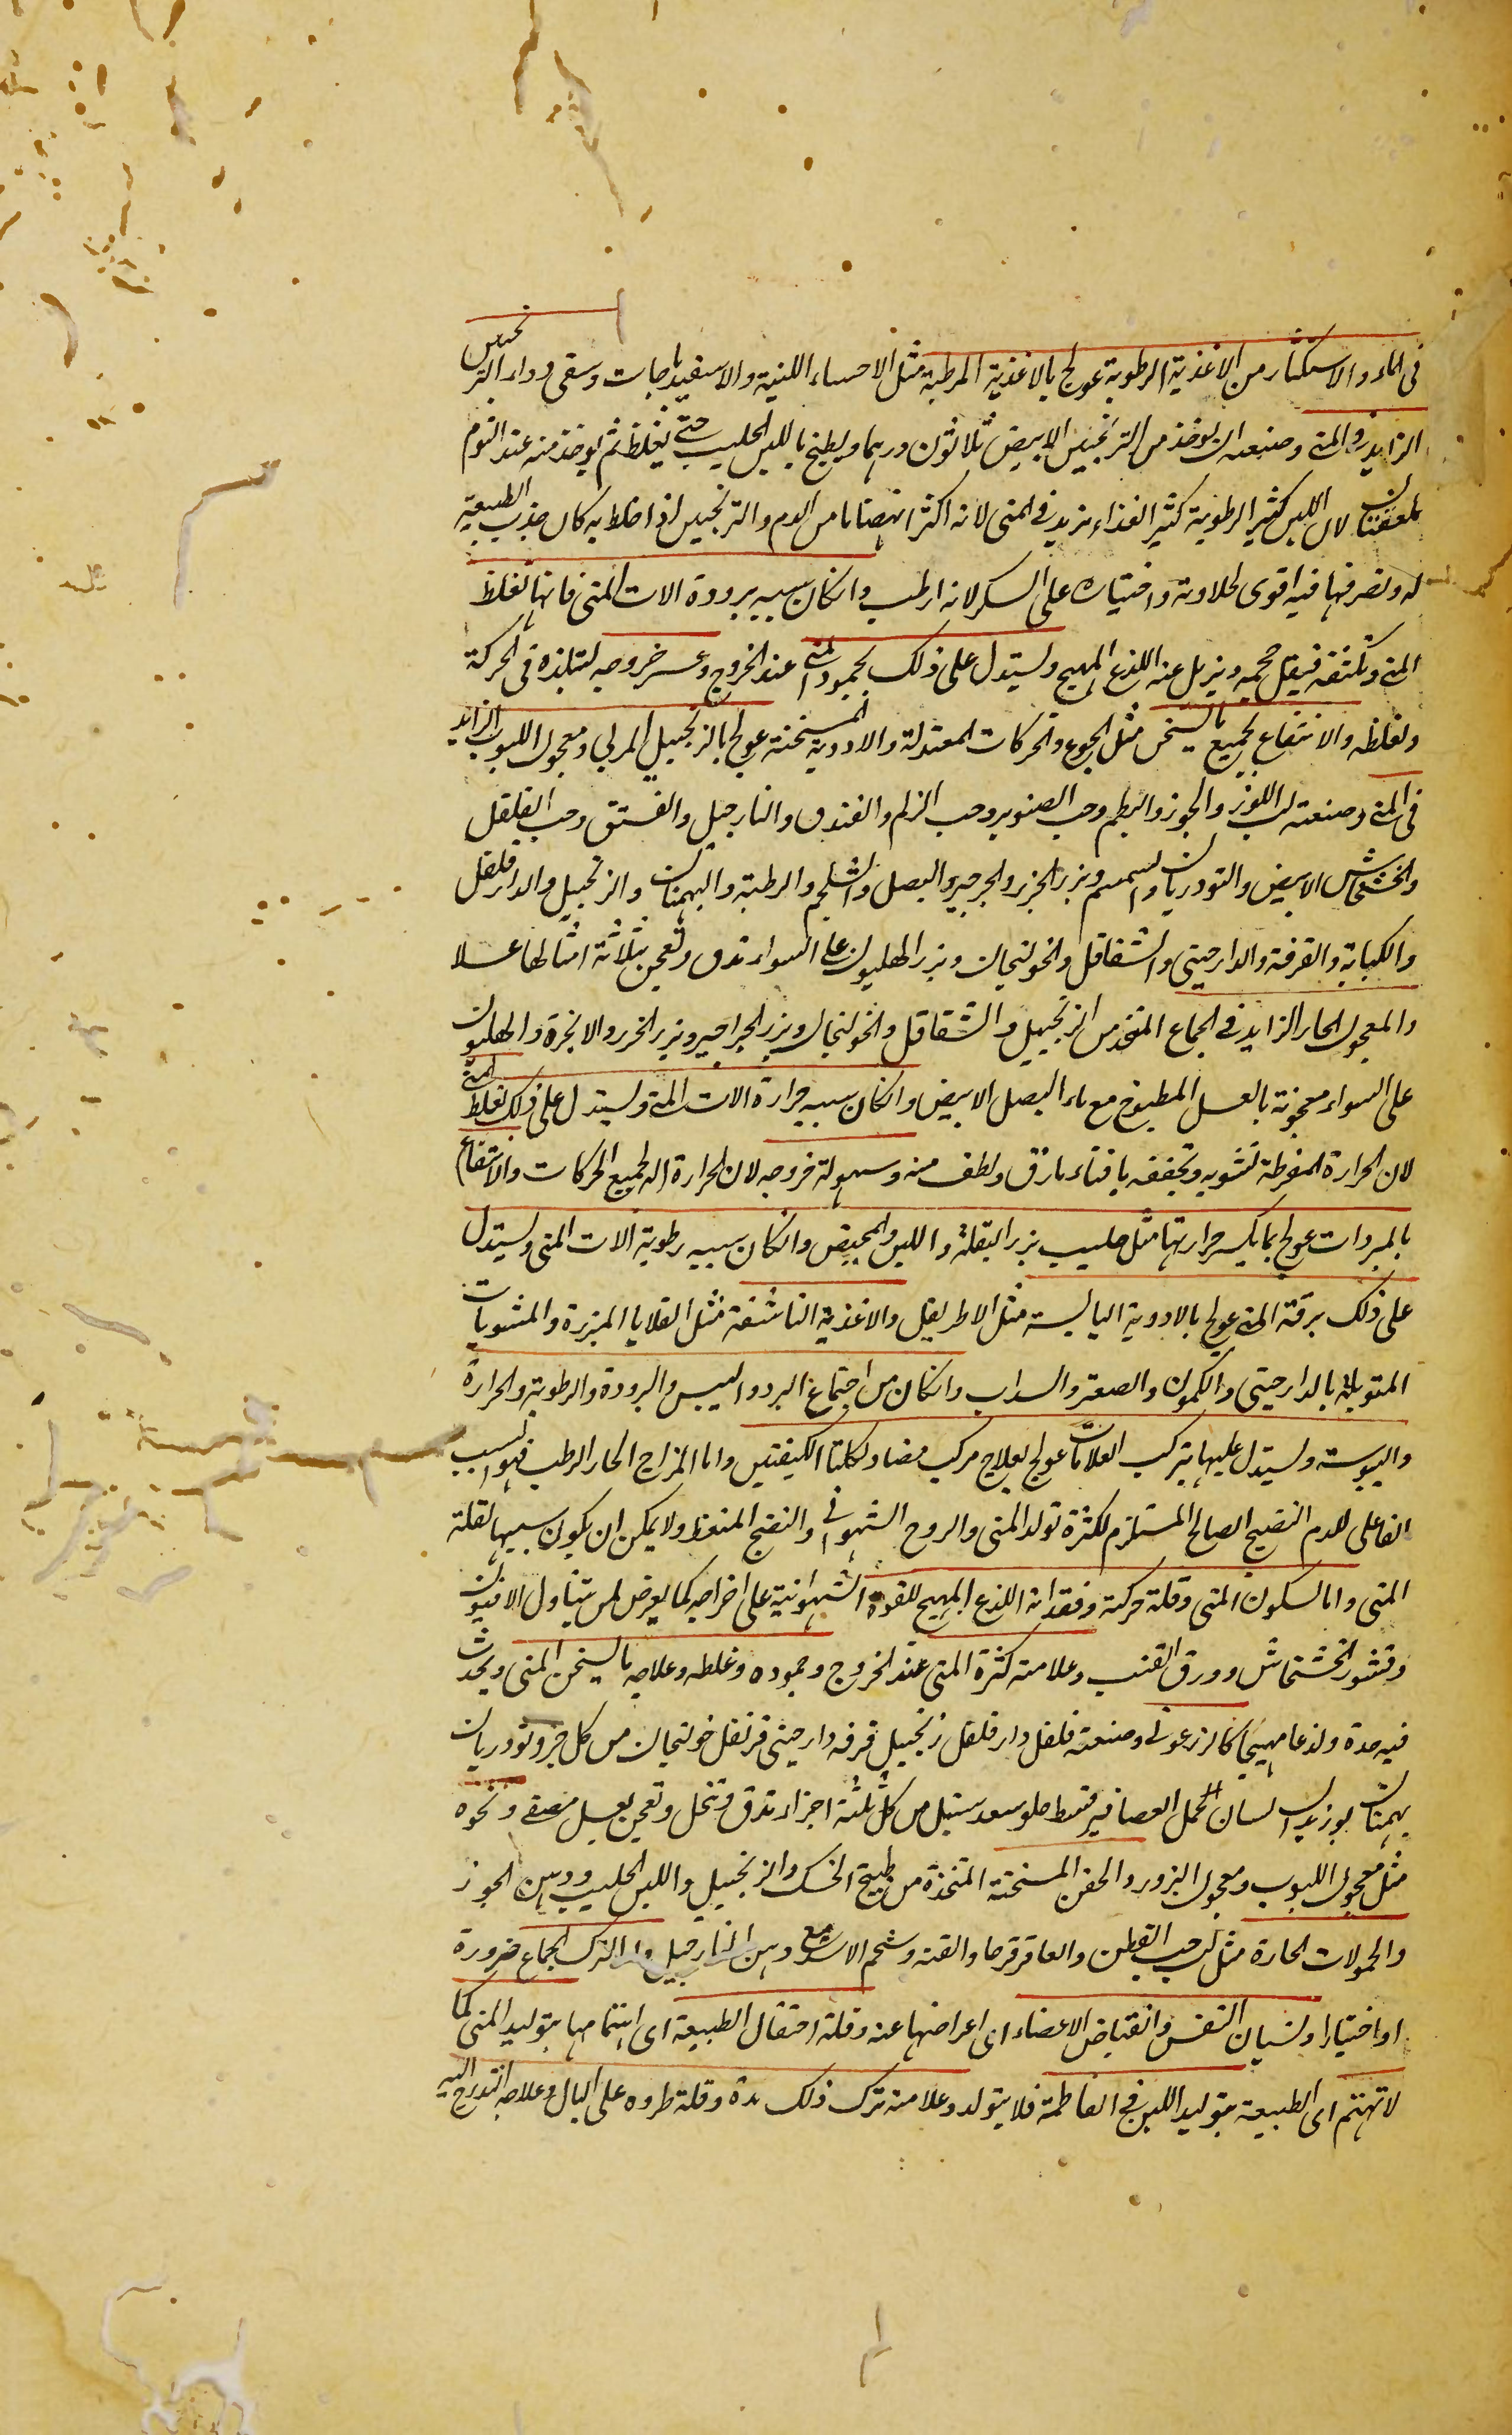 فى الماء والاستكثار من الاغذية الرطوبة عولج بالاغذية المرطبة مثل الاحساء اللبنية والاسفيدباجات وسقى دواء الترنجبين
الزايد فى المنى وصنعته ان يوخذ من الترنجبين الابيض ثلاثون درهما ويطبخ باللبن الحليب حتى يغلظ ثم يوخذ منه عند النوم
ملعقتان لان اللبن كثير الرطوبة كثير الغذاء يزيد فى المنى لانه اكثر انهضاما من الدم والترنجبين اذا خلط به كان جذب الطبيعة
له وتصرفها فيه اقوى لحلاوته واختياره على السكر لانه ارطب وانكان سببه برودة الات المنى فانها تغلظ
المنى وتكثفه فيقل حجمه ويزيل عنه اللذع المهيج ويستدل على ذلك بجمود المنى عند الخروج وعسر خروجه لتبلده فى الحركة
وغلظه والانتفاع بجميع ما يسخن مثل الجوع والحركات المعتدلة والادوية المسخنة عولج بالزنجبيل المربى ومعجون اللبوب الزايد
فى المنى وصنعته لب اللوز والجوز والبطم وحب الصنوبر وحب الزلم والفندق والنارجيل والفستق وحب الفلفل
والخشخاش الابيض والتودريان والسمسم وبزر الجزر والجرجير والبصل والشلجم والرطبة والبهمنان والزنجبيل والدارفلفل
والكبابة والقرفة والدارچينى والشقاقل والخولنجان وبزر الهليون على السواء تدق وتعجن بثلاثة امثالها عسلا
والمعجون الحار الزايد فى الجماع المتخذ من الزنجبيل والشقاقل والخولنجان وبزر الجرجير وبزر الجزر والانجرة والهليون
على السواء معجونة بالعسل المطبوخ مع ماء البصل الابيض وانكان سببه حرارة الات المنى ويستدل على ذلك بغلظ المنى
لان الحرارة المفرطة تشويه وتجففه بافناء مارق ولطف منه وسهولة خروجه لان الحرارة الة لجميع الحركات والانتفاع
بالمبردات عولج بما يكسر حرارتها مثل حليب بزر البقلة واللبن المخيض وانكان سببه رطوبة الات المنى ويستدل
على ذلك برقة المنى عولج بالادوية اليابسة مثل الاطريفل والاغذية الناشفة مثل القلايا المبزرة والمشويات
المتوبلة بالدارچينى والكمون والصعتر والسداب وانكان من اجتماع البرد واليبس والبرودة والرطوبة والحرارة
واليبوسة ويستدل عليها بتركب العلامات عولج بعلاج مركب مضاد لكلتا الكيفيتين واما المزاج الحار الرطب فهو السبب
الفاعلى للدم النضيج الصالح المستلزم لكثرة تولد المنى والروح الشهوانى والنفخ المنعظ ولا يمكن ان يكون سببها لقلة
المنى واما لسكون المنى وقلة حركته وفقدانه اللذع المهيج للقوة الشهوانية على اخراجه كما يعرض لمن يتناول الافيون
وقشور الخشخاش وورق القنب وعلامته كثرة المنى عند الخروج وجموده وغلظه وعلاجه ما يسخن المنى ويحدث
فيه حدة ولذعا مهيجا كالزرعونى وصنعته فلفل دارفلفل زنجبيل قرفه دارچينى قرنفل خولنجان من كل جزو تودريان
بهمنان بوزيدان لسان الحمل العصافير قسط حلو سعد سنبل من كل ثلثة اجزاء تدق وتنخل وتعجن بعسل مصفى ونحوه
مثل معجون اللبوب ومعجون البزور والحقن المسخنة المتخذة من طبيخ الخسك والزنجبيل واللبن الحليب ودهن الجوز
والحمولات الحارة مثل لب حب القطن والعاقرقرحا والقنه وشحم الاسد مع دهن النارجيل واما لترك الجماع ضرورة
او اختيارا ونسيان النفس وانقباض الاعضاء اى اعراضها عنه وقلة احتفال الطبيعة اى اهتمامها بتوليد المنى كما
لا تهتم اى الطبيعة بتوليد اللبن فى الفاطمة فلا يتولد وعلامته ترك ذلك مدة وقلة طروه على البال وعلاجه التدرج اليه